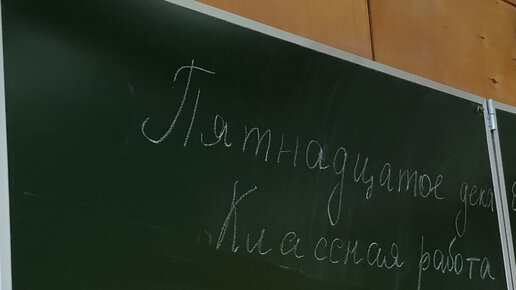 Пятнадцатое дека
Классная работа